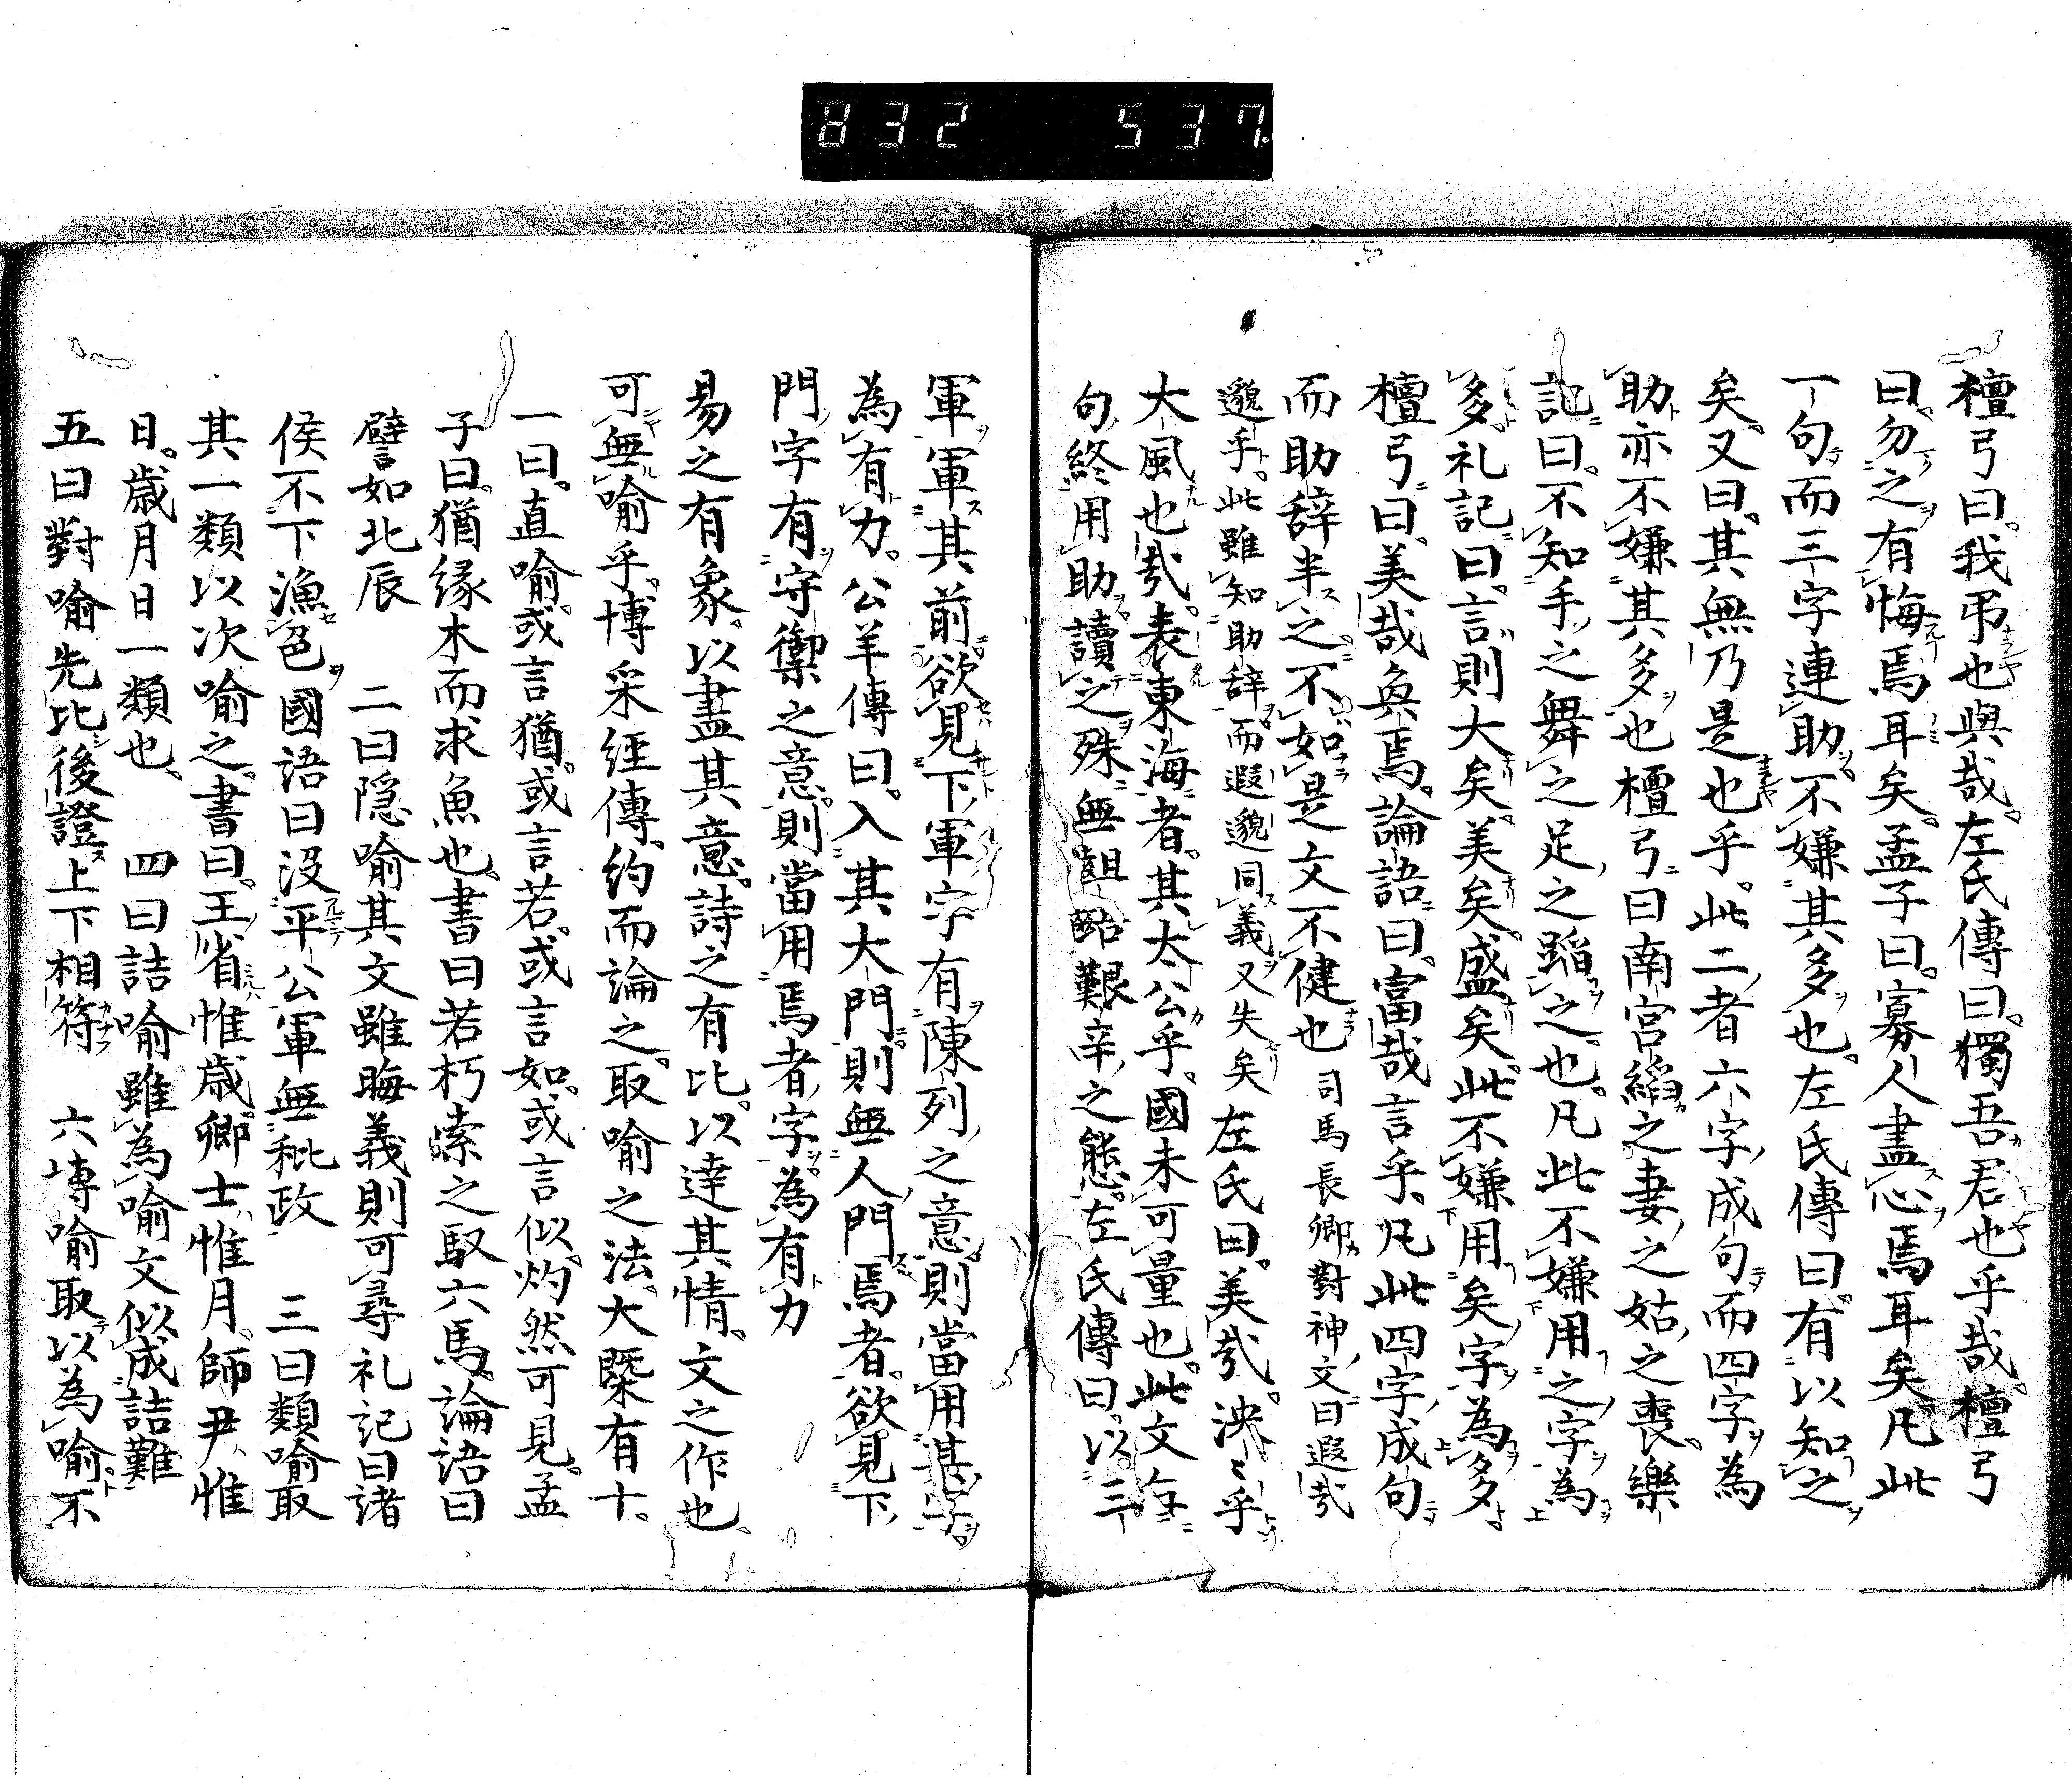 832 537
檀弓曰我弔也與哉左氏傳曰獨吾君也乎哉檀弓
曰勿之有悔焉耳矣孟子曰寡人盡心焉耳矣凡此
一句而三字連助不嫌其多也左氏傳曰有以知之
矣又曰其無乃是也乎此二者六字成句而四字為
助亦不嫌其多也檀弓曰南宮縚之妻之姑之喪樂
記曰不知手之舞之足之蹈之也凡此不嫌用之字為
多礼記曰言則大矣美矣盛矣此不嫌用矣字為多
檀弓曰美哉奐焉論語曰富哉言乎凡此四字成句
而助辞半之不如是文不健也司馬長卿對神文曰遐哉
邈乎此雖知助辞而遐邈同義又失矣左氏曰美哉泱〻乎
大風也哉表東海者其太公乎國未可量也此文每三
句終用助讀之殊無齟齬艱辛之態左氏傳曰以三
軍軍其前欲見下軍字有陳列之意則當用其字
為有力公羊傳曰入其大門則無人門焉者欲見下
門字有守禦之意則當用焉者字為有力
易之有象以盡其意詩之有比以達其情文之作也
可無喻乎博采経傳約而論之取喻之法大槩有十
一曰直喻或言猶或言若或言如或言似灼然可見孟
子曰猶縁木而求魚也書曰若朽索之馭六馬論語曰
譬如北辰 二曰隠喻其文雖晦義則可尋礼記曰諸
侯不下漁色國語曰没平公軍無秕政 三曰類喻取
其一類以次喻之書曰王省惟歳卿士惟月師尹惟
日歳月日一類也 四曰詰喻雖為喻文似成詰難
五曰對喻先比後證上下相符 六博喻取以為喻不